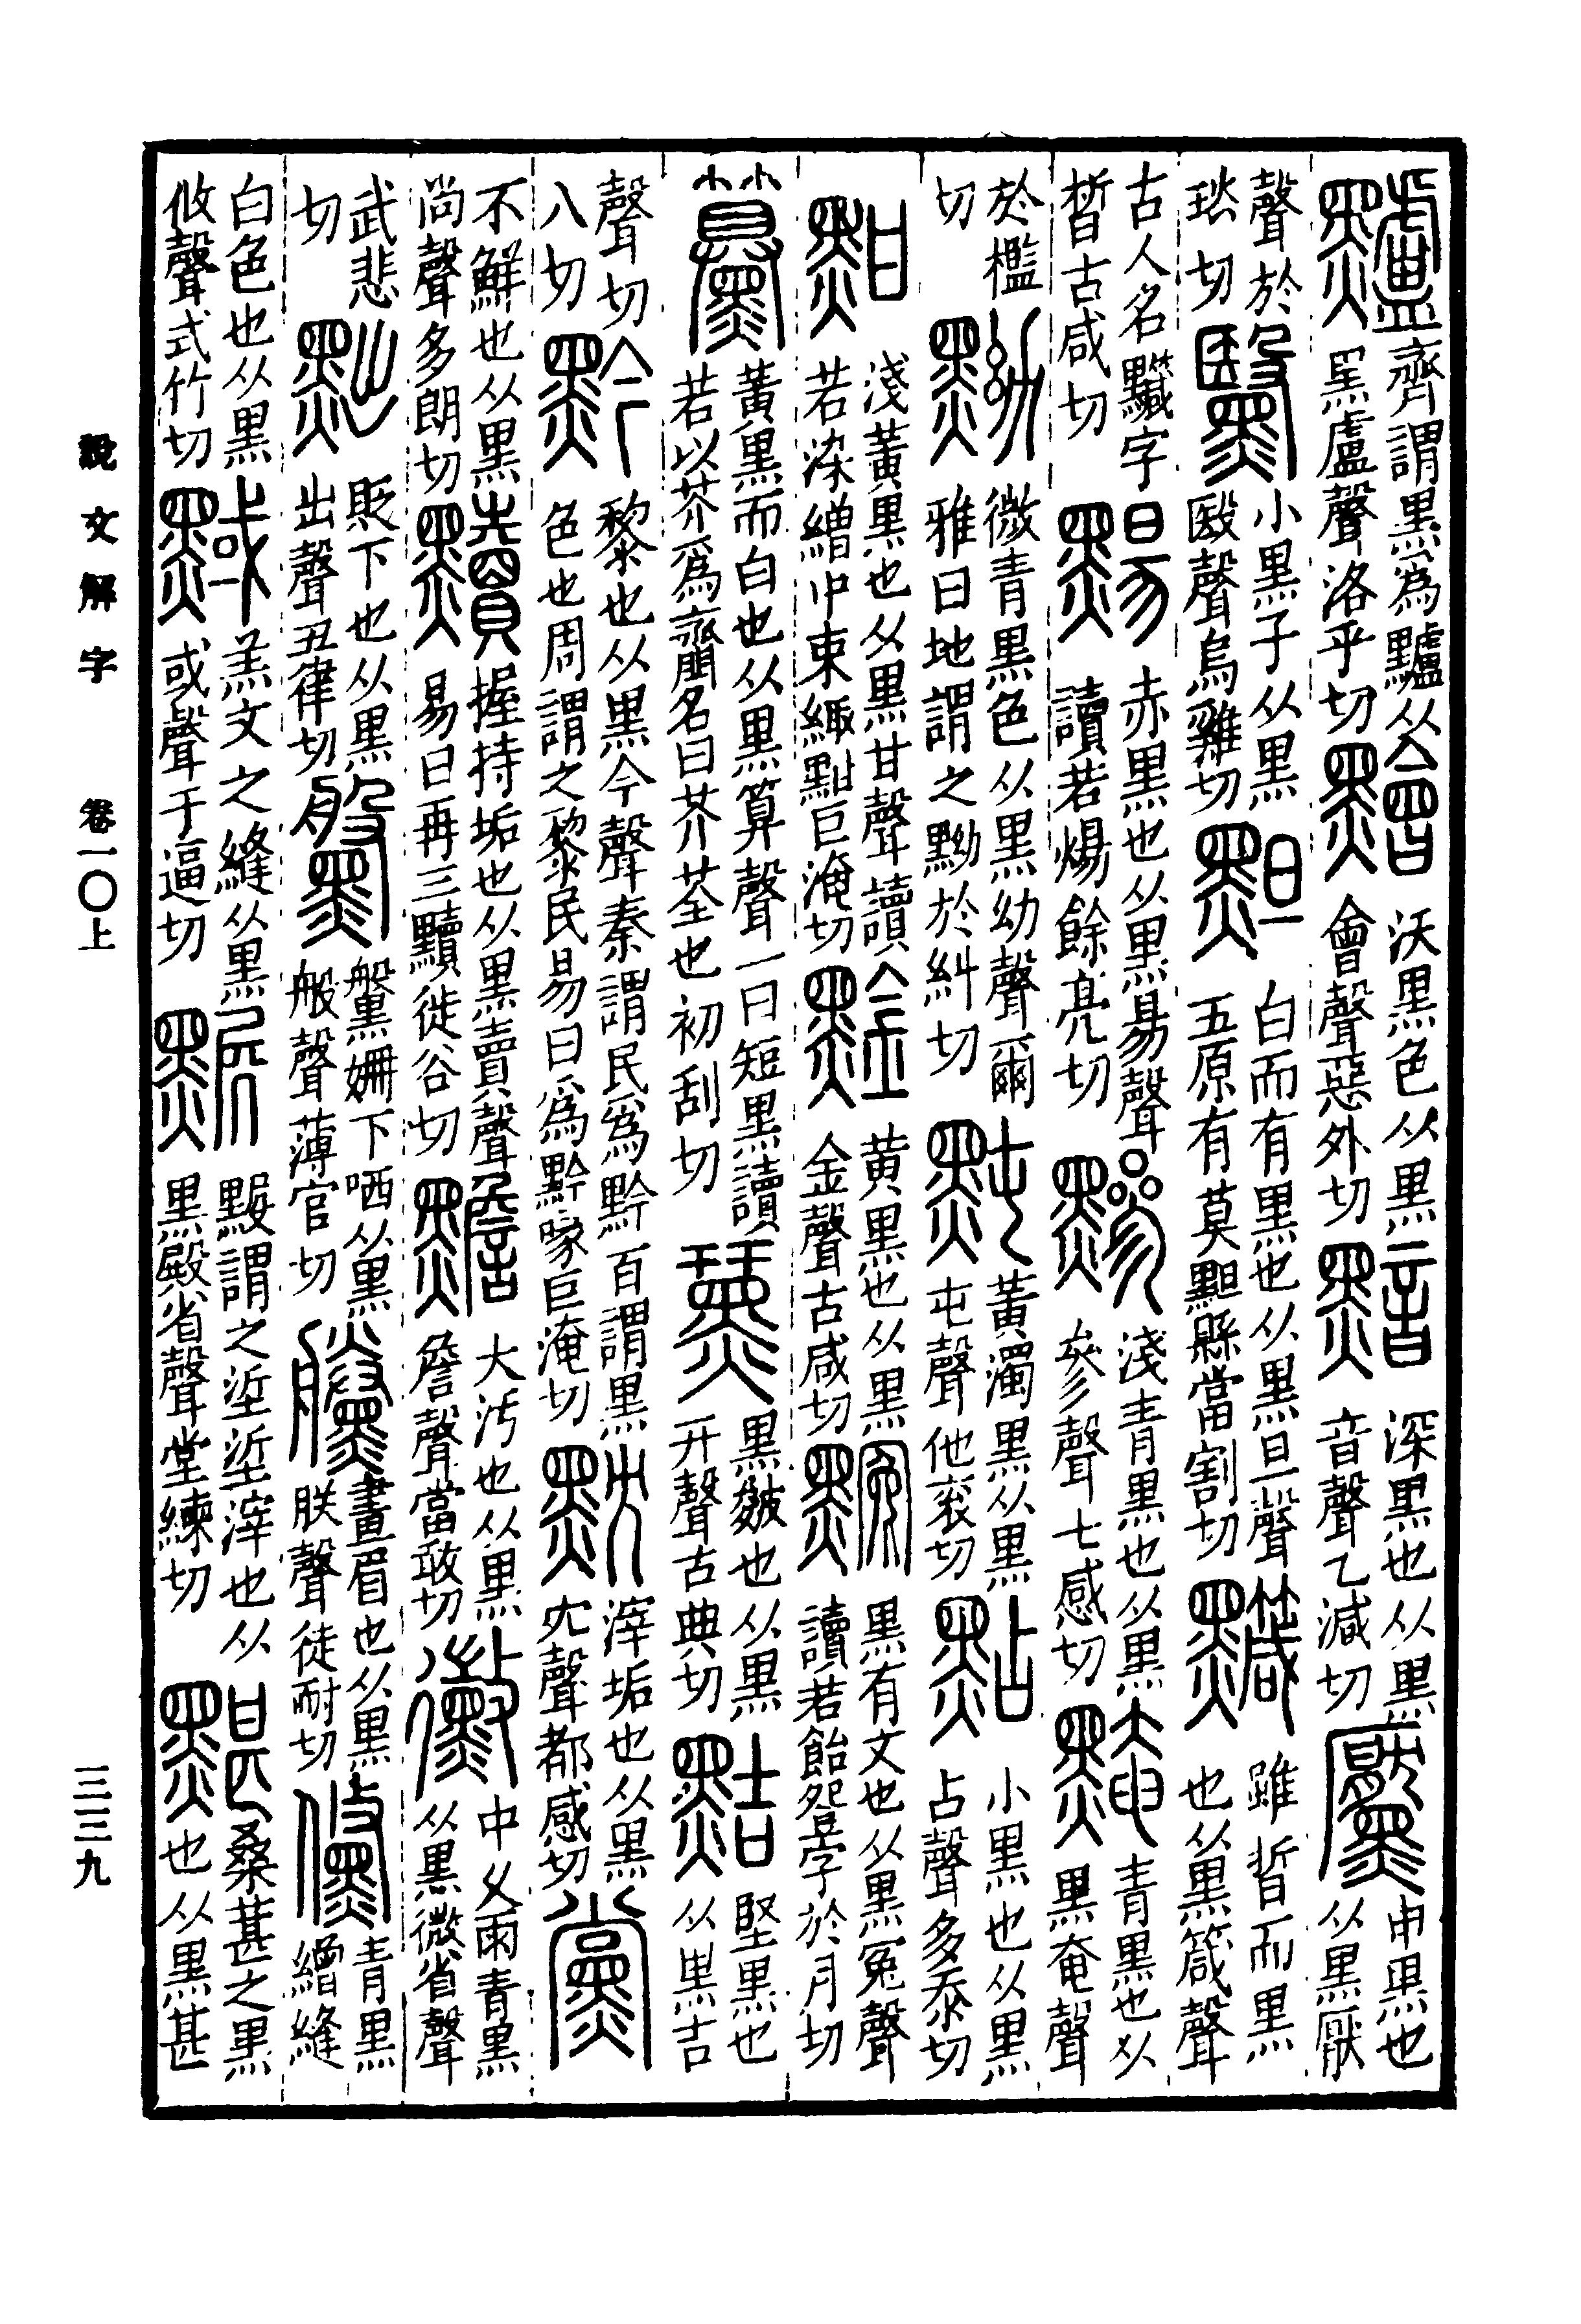 黸齊謂黑爲黸从黑盧聲洛乎切䵳沃黑色从黑會聲惡外切黯深黑也从黑音聲乙減切黶申黑也从黑厭
聲於琰切黳小黑子从黑殹聲烏雞切䵣白而有黑也从黑旦聲五原有莫䵣縣當割切雖晳而黑也从黑箴聲
古人名字晳古咸切䵮赤黑也从黑昜聲讀若煬餘亮切黲淺青黑也从黑參聲七感切黤青黑也从黑奄聲
於檻切黝微青黑色从黑幼聲爾雅曰地謂之黝於糾切黗黃濁黑从黑屯聲他袞切點小黑也从黑占聲多忝切
黚淺黃黑也从黑甘聲讀若染繒中束緅黚巨淹切黃黑也从黑金聲古咸切黑有文也从黑冤聲讀若飴字於月切
黃黑而白也从黑算聲一曰短黑讀若以芥爲齏名曰芥荃也初刮切黑皴也从黑幵聲古典切黠堅黑也从黑吉
聲切八切黔黎也从黑今聲秦謂民爲黔百謂黑色也周謂之黎民易曰爲黔喙巨淹切黕滓垢也从黑冘聲都感切黨
不鮮也从黑尚聲多朗切黷握持垢也从黑賣聲易曰再三黷徒谷切黵大污也从黑詹聲當敢切黴中久雨青黑从黑微省聲
武悲切黜貶下也从黑出聲丑律切姍下哂从黑般聲薄官切黱畫眉也从黑朕聲徒耐切儵青黑繒縫
白色也从黑攸聲式竹切羔文之縫从黑或聲于逼切謂之垽垽滓也从黑殿省聲堂練切黮桑葚之黑也从黑甚
說文解字 卷一〇上 三三九